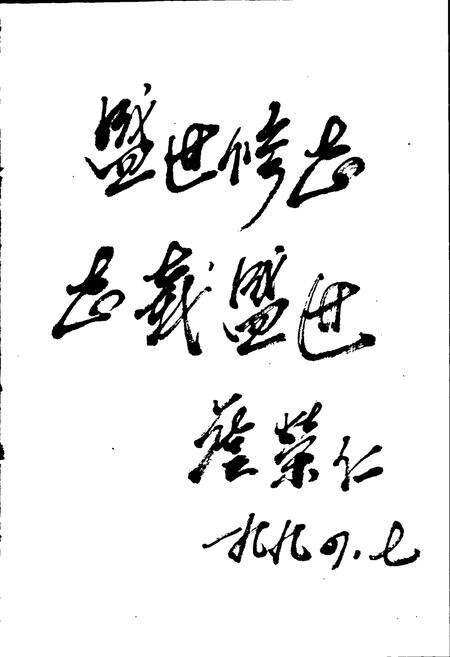 盛世修志
志載盛世
榮仁
一九九四.七